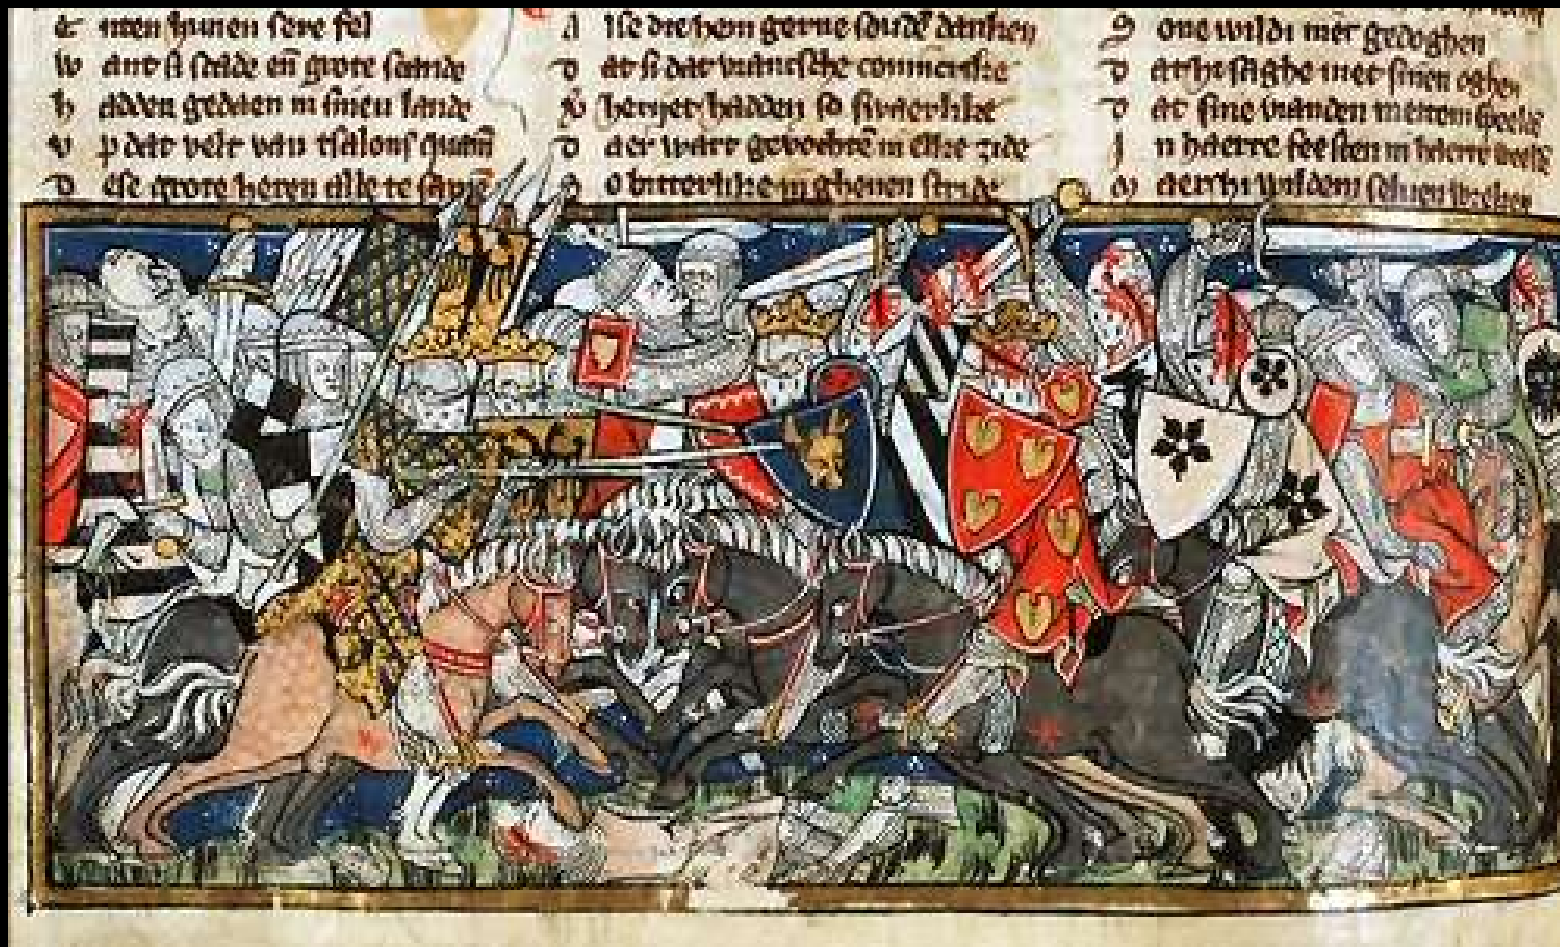 E nten hunen sere fel
w ant si scade en̄ grote scande
h adden gedaen in sinen lande
v p dat velt van tsalons quam̄
D ese grote heren alle te samē
A lse die hem gerne soudē danken
D at si dat vransche conincrike
V herget hadden so swaerlike
D aer wart gevochtē in elke zide
S o bitterlike in ghenen stride
G one wildi met gedoghen
D at hi saghe met sinen oghen
D at sine vianden
I n haerre feesten in haerre
M aer hi wildem seluen wreken